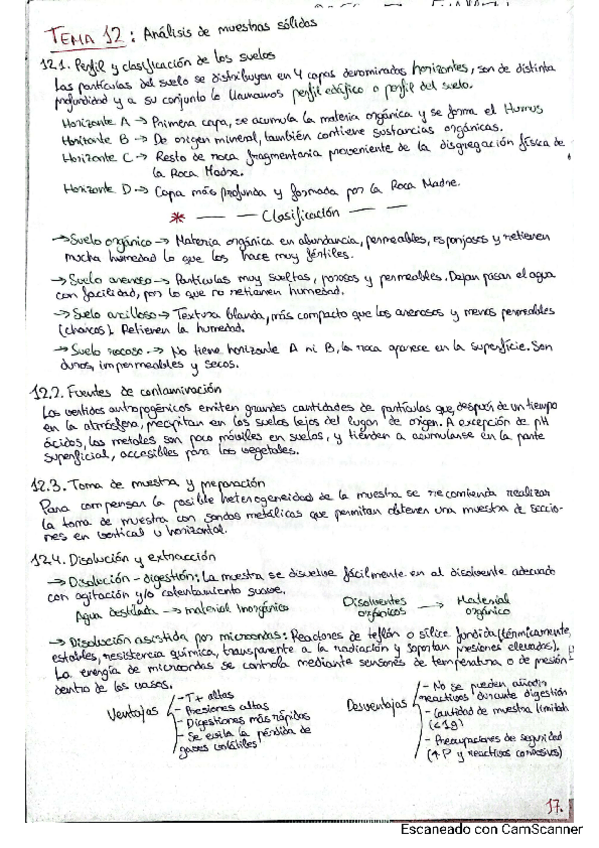 TEMA 12: Análisis de muestras sólidas
12.1. Perfil y clasificación de los suelos
Las partículas del suelo se distribuyen en 4 capas denominadas horizontes, son de distinta
profundidad y a su conjunto lo llamamos perfil edáfico o perfil del suelo.
Horizonte A → Primera capa, se acumula la materia orgánica y se forma el Humus
Horizonte B → De origen mineral, también contiene sustancias orgánicas.
Horizonte C → Resto de roca fragmentaria proveniente de la disgregación física de
la Roca Madre.
Horizonte D → Capa más profunda y formada por la Roca Madre.
* — — Clasificación — —
→ Suelo orgánico → Materia orgánica en abundancia, permeables, esponjosos y retienen
mucha humedad lo que los hace muy fértiles.
→ Suelo arenoso → Partículas muy sueltas, porosos y permeables. Dejan pasar el agua
con facilidad, por lo que no retienen humedad.
→ Suelo arcilloso → Textura blanda, más compacto que los arenosos y menos permeables
(charcos). Retienen la humedad.
→ Suelo rocoso → No tiene horizonte A ni B, la roca aparece en la superficie. Son
duros, impermeables y secos.
12.2. Fuentes de contaminación
Los vertidos antropogénicos emiten grandes cantidades de partículas que, después de un tiempo
en la atmósfera, precipitan en los suelos lejos del lugar de origen. A excepción de pH
ácidos, los metales son poco móviles en suelos, y tienden a acumularse en la parte
superficial, accesibles para los vegetales.
12.3. Toma de muestra y preparación
Para compensar la posible heterogeneidad de la muestra se recomienda realizar
la toma de muestra con sondas metálicas que permitan obtener una muestra de seccio-
nes en vertical u horizontal.
12.4. Disolución y extracción
→ Disolución - digestión: La muestra se disuelve fácilmente en el disolvente adecuado
con agitación y/o calentamiento suave.
Agua destilada → material Inorgánico Disolventes orgánicos → Material orgánico
→ Disolución asistida por microondas: Reactores de teflón o sílice fundida (térmicamente
estables, resistencia química, transparente a la radiación y soportan presiones elevadas).
La energía de microondas se controla mediante sensores de temperatura o de presión
dentro de los vasos.
Ventajas
- Tª altas
- Presiones altas
- Digestiones más rápidas
- Se evita la pérdida de
gases volátiles
Desventajas
- No se pueden añadir
reactivos durante digestión
- Cantidad de muestra limitada
(<1g)
- Preocupaciones de seguridad
(↑P y reactivos corrosivos)
17.
Escaneado con CamScanner